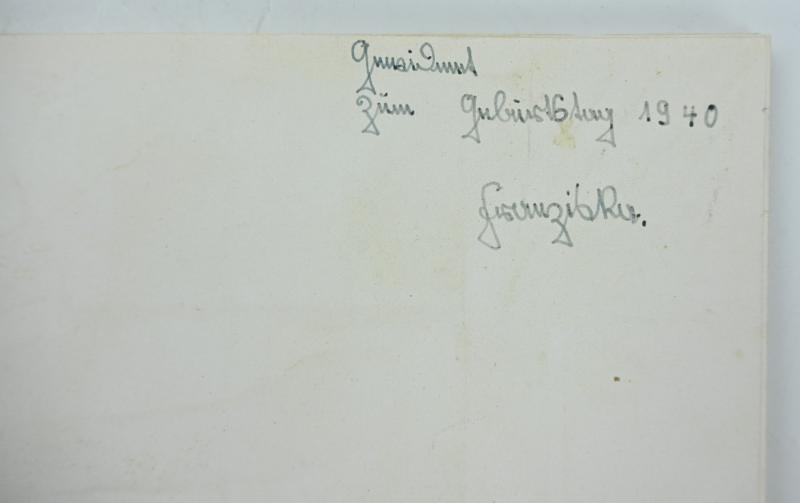 Gewidmet
zum Geburtstag 1940
Franziska.